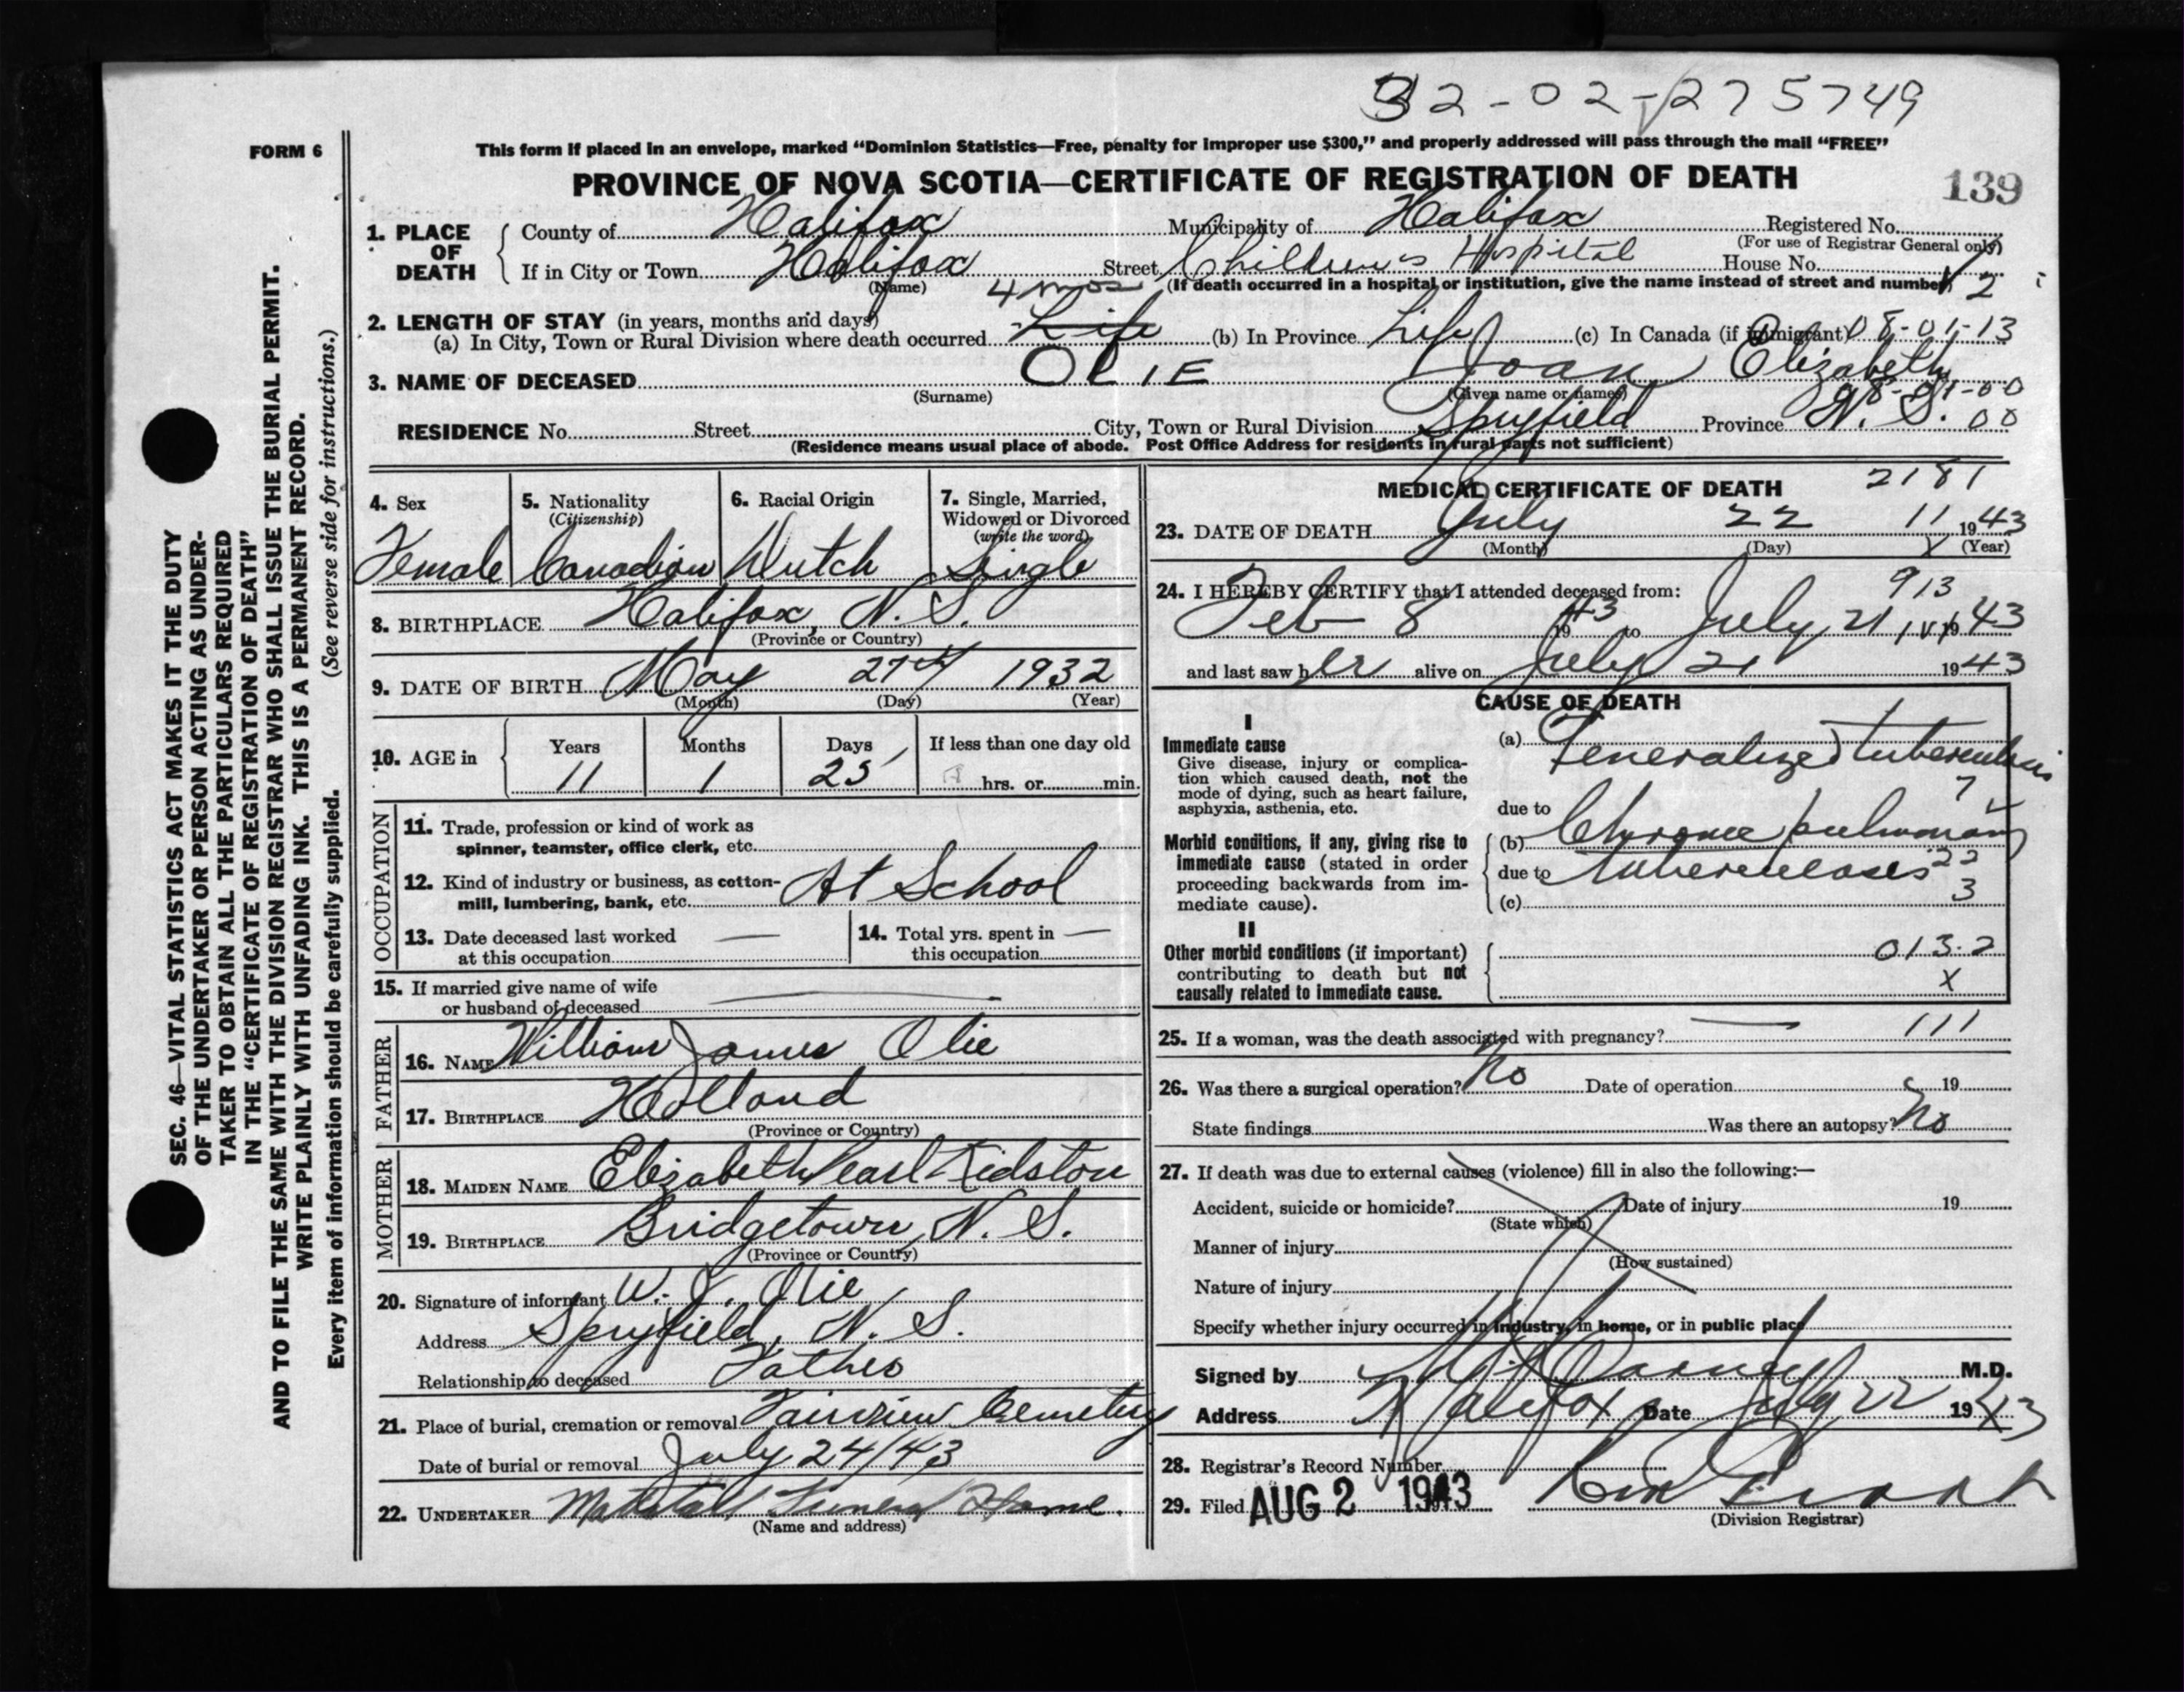 32-02-275749
FORM 6
This form if placed in an envelope, marked “Dominion Statistics—Free, penalty for improper use $300,” and properly addressed will pass through the mail “FREE”
PROVINCE OF NOVA SCOTIA—CERTIFICATE OF REGISTRATION OF DEATH
139
1. PLACE OF DEATH County of Halifax Municipality of Halifax Registered No.
(For use of Registrar General only)
If in City or Town Halifax Street Children's Hospital House No.
(Name) 4 mos (If death occurred in a hospital or institution, give the name instead of street and number) 2
2. LENGTH OF STAY (in years, months and days)
(a) In City, Town or Rural Division where death occurred Life (b) In Province Life (c) In Canada (if immigrant) 08-01-13
3. NAME OF DECEASED OLIE Joan Elizabeth
(Surname) (Given name or names) 98-01-00
RESIDENCE No. Street City, Town or Rural Division Spryfield Province N. S. 00
(Residence means usual place of abode. Post Office Address for residents in rural parts not sufficient)
4. Sex 5. Nationality (Citizenship) 6. Racial Origin 7. Single, Married, Widowed or Divorced (write the word)
Female Canadian Dutch Single
8. BIRTHPLACE Halifax, N. S.
(Province or Country)
9. DATE OF BIRTH May 27th 1932
(Month) (Day) (Year)
10. AGE in Years Months Days If less than one day old
11 1 25 hrs. or min.
OCCUPATION
11. Trade, profession or kind of work as
spinner, teamster, office clerk, etc.
12. Kind of industry or business, as cotton-
mill, lumbering, bank, etc. At School
13. Date deceased last worked — 14. Total yrs. spent in —
at this occupation this occupation
15. If married give name of wife
or husband of deceased —
FATHER
16. NAME William James Olie
17. BIRTHPLACE Holland
(Province or Country)
MOTHER
18. MAIDEN NAME Elizabeth Pearl Kidston
19. BIRTHPLACE Bridgetown, N. S.
(Province or Country)
20. Signature of informant W. J. Olie
Address Spryfield, N. S.
Relationship to deceased Father
21. Place of burial, cremation or removal Fairview Cemetery
Date of burial or removal July 24/43
22. UNDERTAKER Funeral Home.
(Name and address)
MEDICAL CERTIFICATE OF DEATH 2181
23. DATE OF DEATH July 22 11 1943
(Month) (Day) X (Year)
24. I HEREBY CERTIFY that I attended deceased from: 913
Feb 8 1943 to July 21 1943
and last saw her alive on July 21 1943
CAUSE OF DEATH
I
Immediate cause
Give disease, injury or complica-
tion which caused death, not the
mode of dying, such as heart failure,
asphyxia, asthenia, etc.
(a) Generalized tuberculosis
7
due to
Morbid conditions, if any, giving rise to
immediate cause (stated in order
proceeding backwards from im-
mediate cause).
(b) Chronic pulmonary
due to tuberculosis 22
(c) 3
II
Other morbid conditions (if important)
contributing to death but not
causally related to immediate cause.
013.2
X
25. If a woman, was the death associated with pregnancy? — 111
26. Was there a surgical operation? No Date of operation 19
State findings Was there an autopsy? No
27. If death was due to external causes (violence) fill in also the following:—
Accident, suicide or homicide? Date of injury 19
(State which)
Manner of injury
(How sustained)
Nature of injury
Specify whether injury occurred in industry, in home, or in public place
Signed by M.D.
Address Halifax Date July 22 1943
28. Registrar's Record Number
29. Filed AUG 2 1943
(Division Registrar)
SEC. 46—VITAL STATISTICS ACT MAKES IT THE DUTY
OF THE UNDERTAKER OR PERSON ACTING AS UNDER-
TAKER TO OBTAIN ALL THE PARTICULARS REQUIRED
IN THE “CERTIFICATE OF REGISTRATION OF DEATH”
AND TO FILE THE SAME WITH THE DIVISION REGISTRAR WHO SHALL ISSUE THE BURIAL PERMIT.
WRITE PLAINLY WITH UNFADING INK. THIS IS A PERMANENT RECORD.
Every item of information should be carefully supplied. (See reverse side for instructions.)